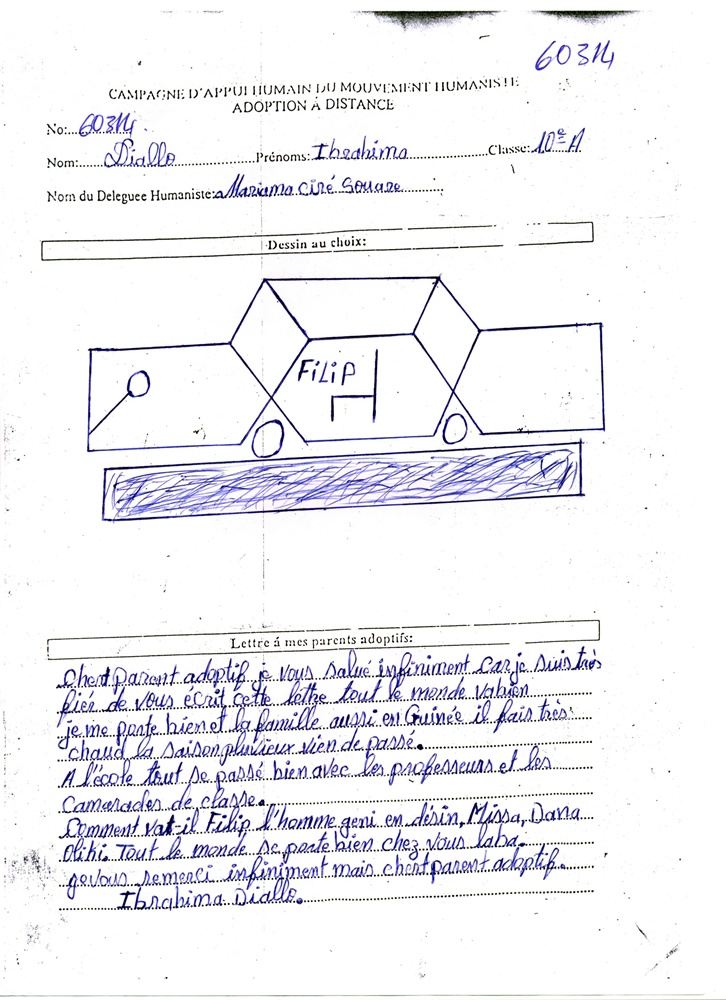 60314
CAMPAGNE D'APPUI HUMAIN DU MOUVEMENT HUMANISTE
ADOPTION A DISTANCE
No:...60314.
Nom:......Diallo......Prénoms:.Ibrahima......Classe:.10e A
Nom du Deleguee Humaniste:.Mariama Ciré Souare......
Dessin au choix:
FiLiP
Lettre á mes parents adoptifs:
chert parent adoptif je vous salué infiniment car je suis très
fier de vous écrit cette lettre tout le monde va bien
je me porte bien et la famille aussi en Guinée il fais très
chaud la saison pluvieux vien de passé.
A l'école tout se passé bien avec les professeurs et les
Camarades de classe.
Comment vat-il Filip l'homme geni en désin, Missa, Dana
Oliki. Tout le monde se porte bien chez vous laba.
ge vous remerci infiniment mais chert parent adoptif.
Ibrahima Diallo.